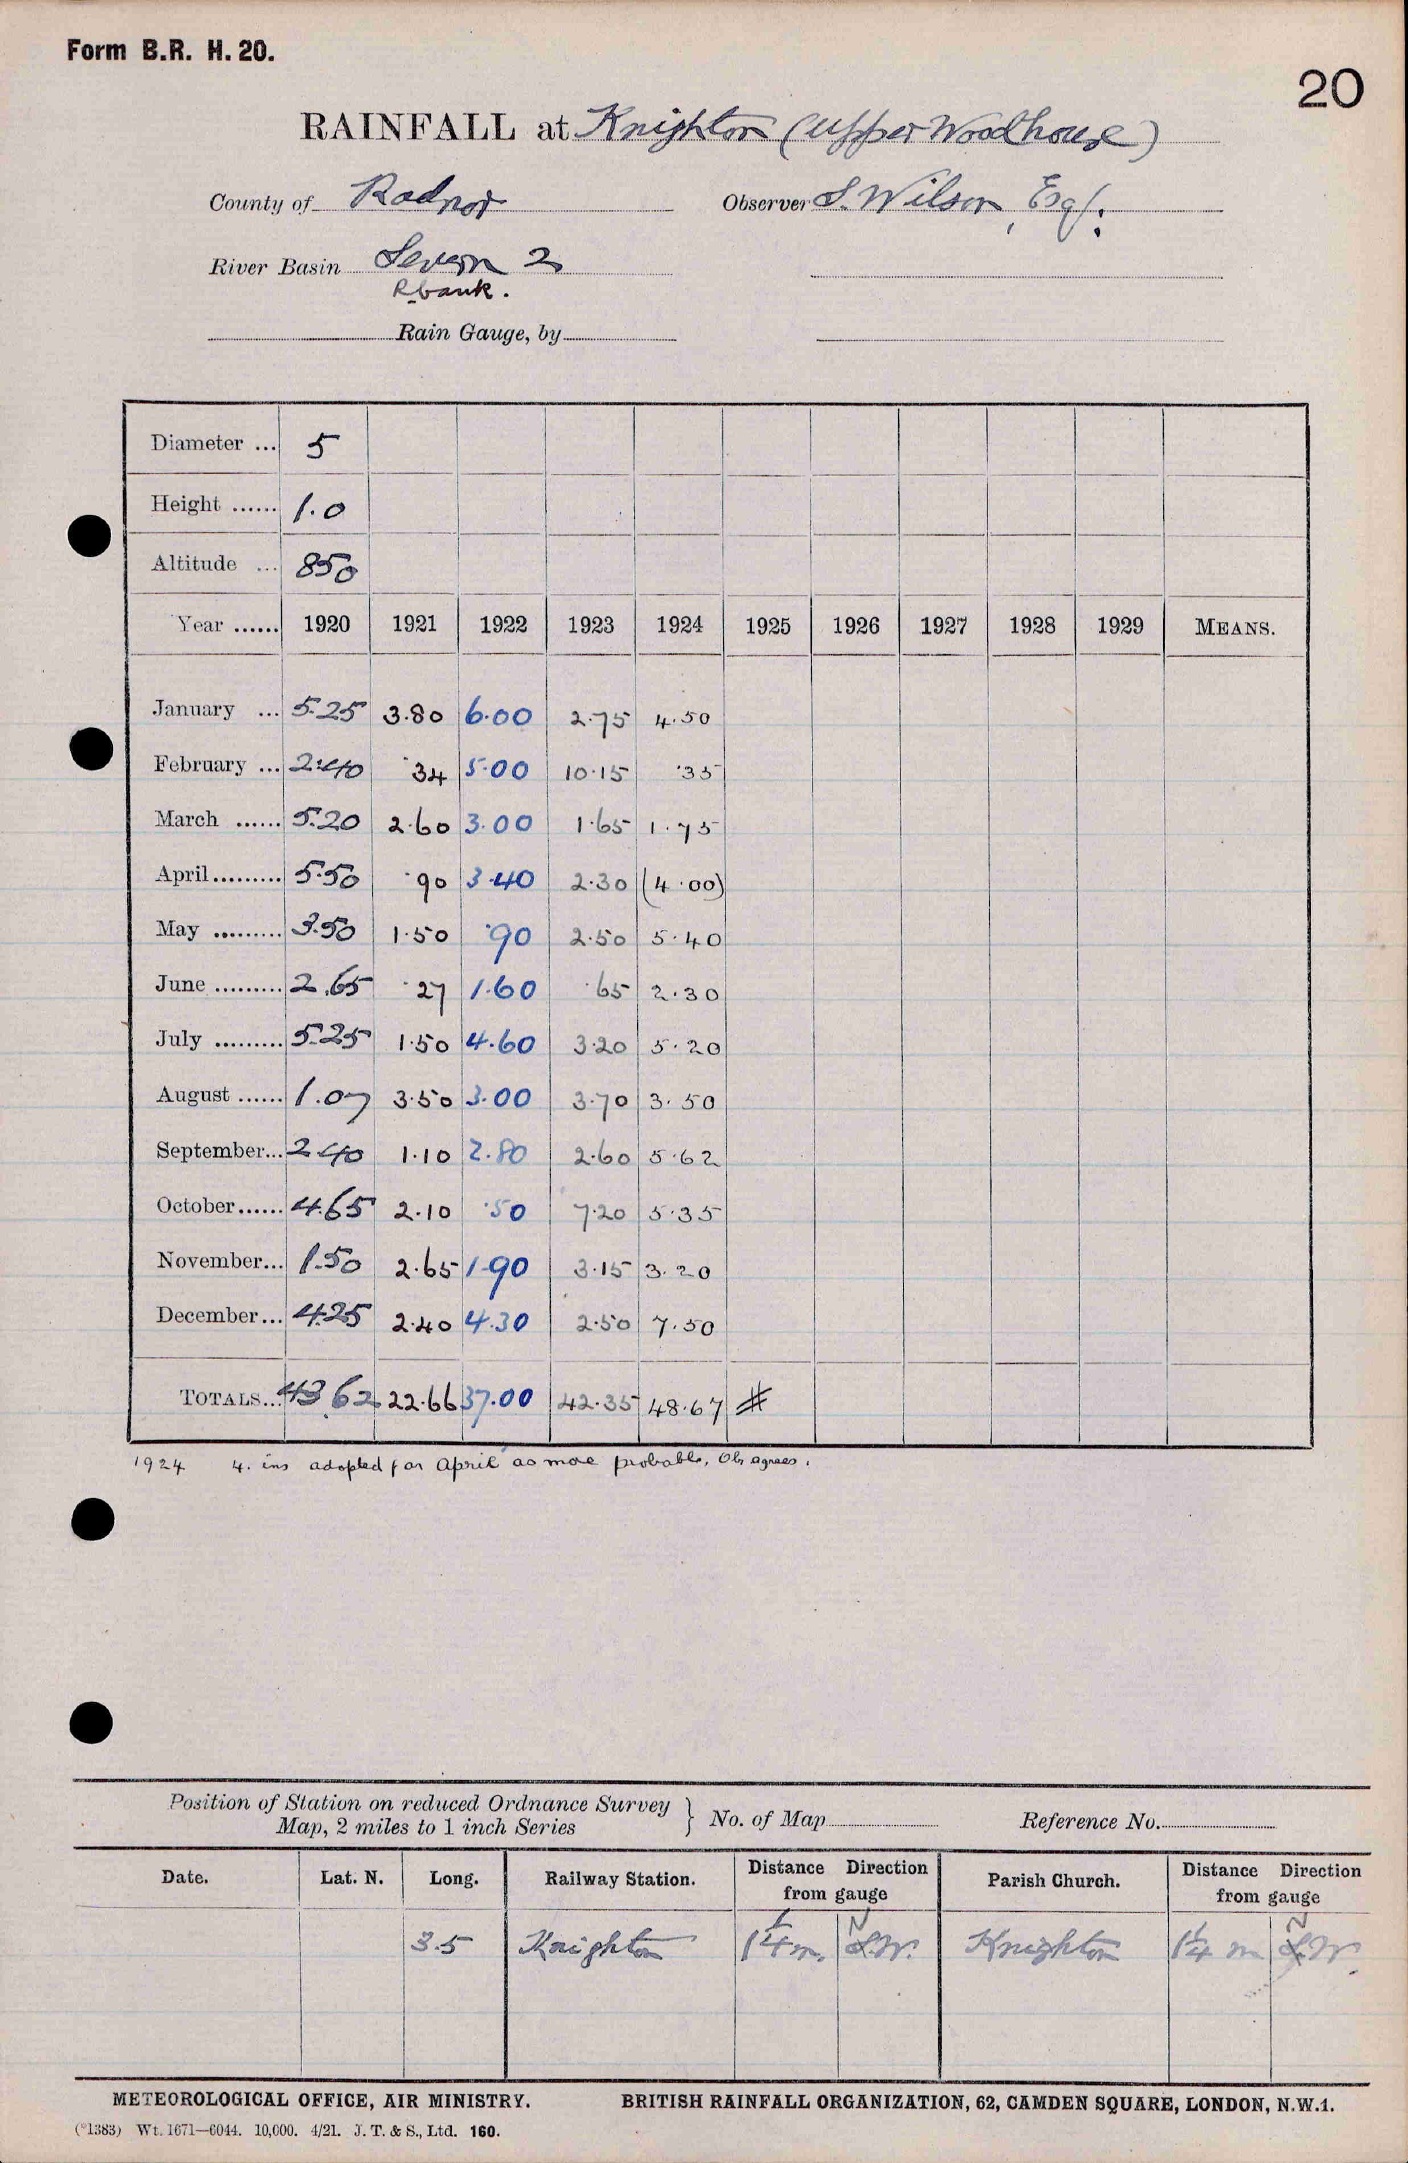 Form B.R. H. 20.
20
RAINFALL at Knighton (Upper Woodhouse)
County of Radnor Observer S. Wilson, Esq.
River Basin Severn 2
R bank.
Rain Gauge, by
Diameter ... 5
Height ...... 1.0
Altitude ... 850
Year ...... 1920 1921 1922 1923 1924 1925 1926 1927 1928 1929 MEANS.
January ... 5.25 3.80 6.00 2.75 4.50
February ... 2.40 .34 5.00 10.15 .35
March ...... 5.20 2.60 3.00 1.65 1.75
April......... 5.50 .90 3.40 2.30 (4.00)
May ......... 3.50 1.50 .90 2.50 5.40
June ......... 2.65 .27 1.60 .65 2.30
July ......... 5.25 1.50 4.60 3.20 5.20
August ...... 1.07 3.50 3.00 3.70 3.50
September... 2.40 1.10 2.80 2.60 5.62
October...... 4.65 2.10 .50 7.20 5.35
November... 1.50 2.65 1.90 3.15 3.20
December... 4.25 2.40 4.30 2.50 7.50
TOTALS... 43.62 22.66 37.00 42.35 48.67 #
1924 4. ins adopted for April as more probable, Ob. agrees.
Position of Station on reduced Ordnance Survey
Map, 2 miles to 1 inch Series } No. of Map Reference No.
Date. Lat. N. Long. Railway Station. Distance Direction from gauge Parish Church. Distance Direction from gauge
3.5 Knighton 1 1/4 m. N.W. Knighton 1 1/4 m N.W.
METEOROLOGICAL OFFICE, AIR MINISTRY. BRITISH RAINFALL ORGANIZATION, 62, CAMDEN SQUARE, LONDON, N.W.1.
(*1383) Wt. 1671—6044. 10,000. 4/21. J. T. & S., Ltd. 160.